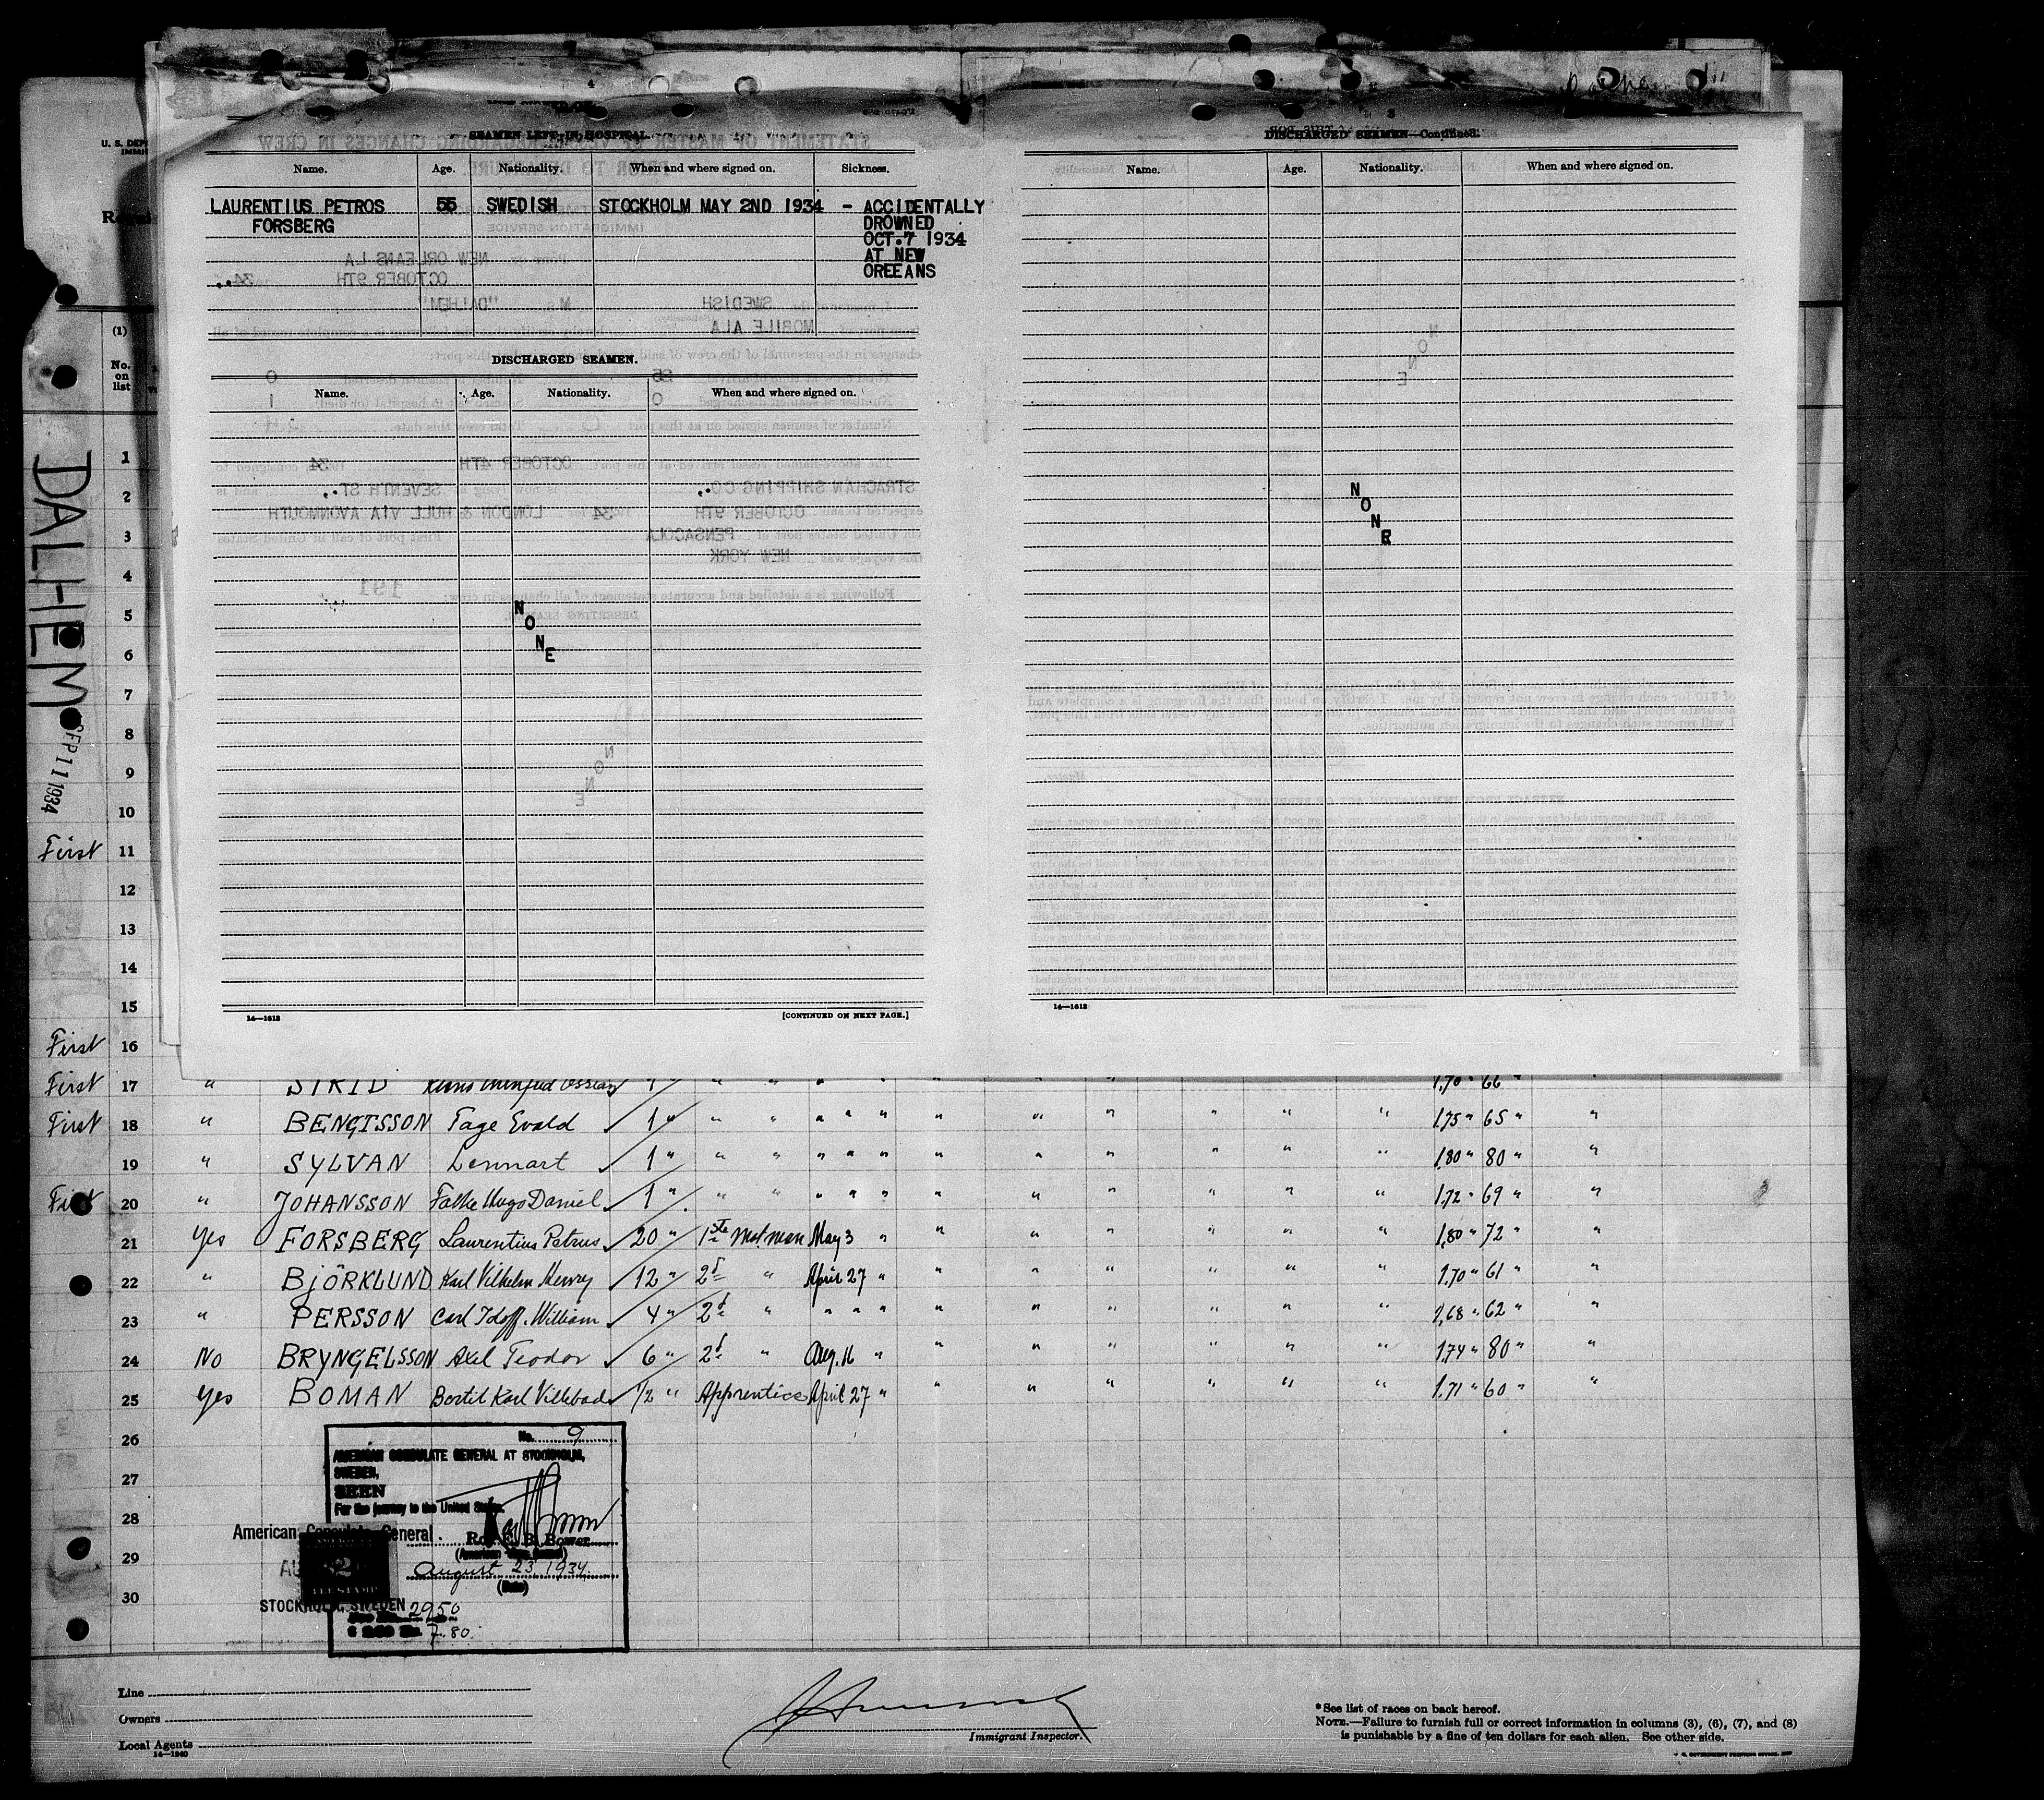 U. S. DEP
IMMI
SEAMEN LEFT IN HOSPITAL.
Name. Age. Nationality. When and where signed on. Sickness.
LAURENTIUS PETROS 55 SWEDISH STOCKHOLM MAY 2ND 1934 - ACCIDENTALLY
FORSBERG DROWNED
OCT.7 1934
AT NEW
ORLEANS
DISCHARGED SEAMEN.
Name. Age. Nationality. When and where signed on.
N
O
N
E
14—1613 [CONTINUED ON NEXT PAGE.]
DISCHARGED SEAMEN—Continued.
Name. Age. Nationality. When and where signed on.
N
O
N
E
14—1613
(1)
No.
on
list
DALHEM
SEP 11 1934
1
2
3
4
5
6
7
8
9
10
First 11
12
13
14
15
First 16
First 17 " STRID 1,70 " 66 "
First 18 " BENGTSSON Tage Evald 1 " " " " " " " " " " " " 1,75 " 65 " "
19 " SYLVAN Lennart 1 " " " " " " " " " " " " 1,80 " 80 " "
First 20 " JOHANSSON Folke Hugo Daniel 1 " " " " " " " " " " " " 1,72 " 69 " "
21 Yes FORSBERG Laurentius Petrus 20 " 1ste Motorman May 3 " " " " " " " 1,80 " 72 " "
22 " BJÖRKLUND Karl Vilhelm Henry 12 " 2d " April 27 " " " " " " " 1,70 " 61 " "
23 " PERSSON Carl William 4 " 2d " " " " " " " " " " 1,68 " 62 " "
24 No BRYNGELSSON Axel Teodor 6 " 2d " Aug. 16 " " " " " " " 1,74 " 80 " "
25 Yes BOMAN Bertil Karl Villebad 1/2 " Apprentice April 27 " " " " " " " 1,71 " 60 " "
26
27
28
29
30
No. 9
AMERICAN CONSULATE GENERAL AT STOCKHOLM,
SWEDEN,
SEEN
For the journey to the United States.
American Consulate General
Roy E. B. Bower
August 23, 1934
(Date)
STOCKHOLM, SWEDEN
2950
7.80
Line
Owners
Local Agents
14—1240
Immigrant Inspector.
* See list of races on back hereof.
NOTE.—Failure to furnish full or correct information in columns (3), (6), (7), and (8)
is punishable by a fine of ten dollars for each alien. See other side.
U. S. GOVERNMENT PRINTING OFFICE